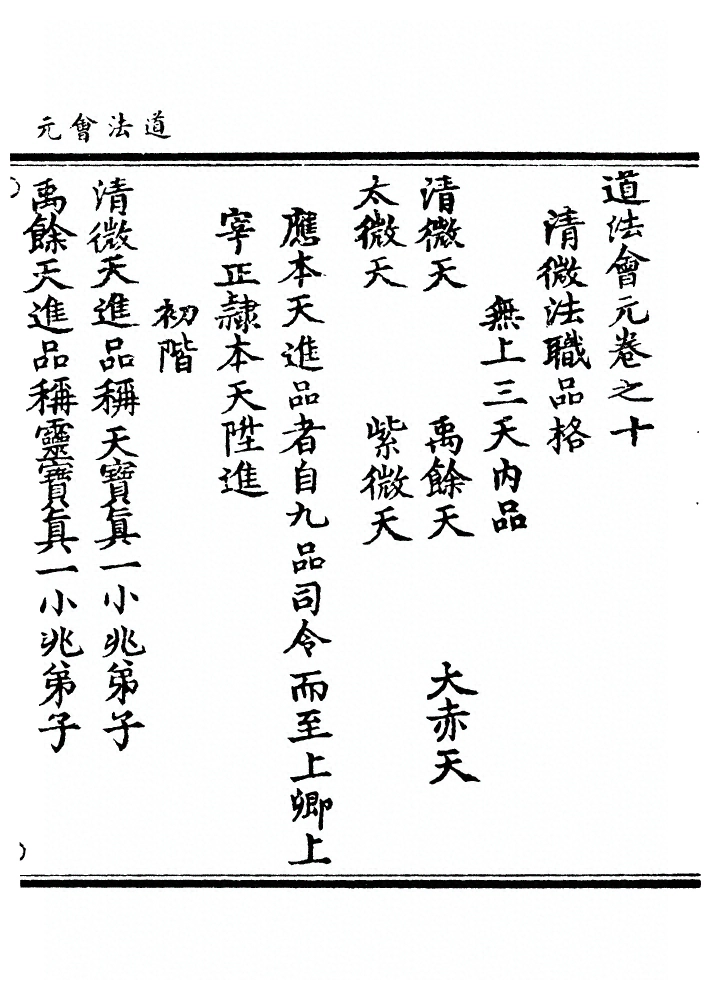 道法會元
道法會元卷之十
清微法職品格
無上三天內品
清微天 禹餘天 大赤天
太微天 紫微天
應本天進品者自九品司令而至上卿上
宰正隸本天陞進
初階
清微天進品稱天寶真一小兆弟子
禹餘天進品稱靈寶真一小兆弟子